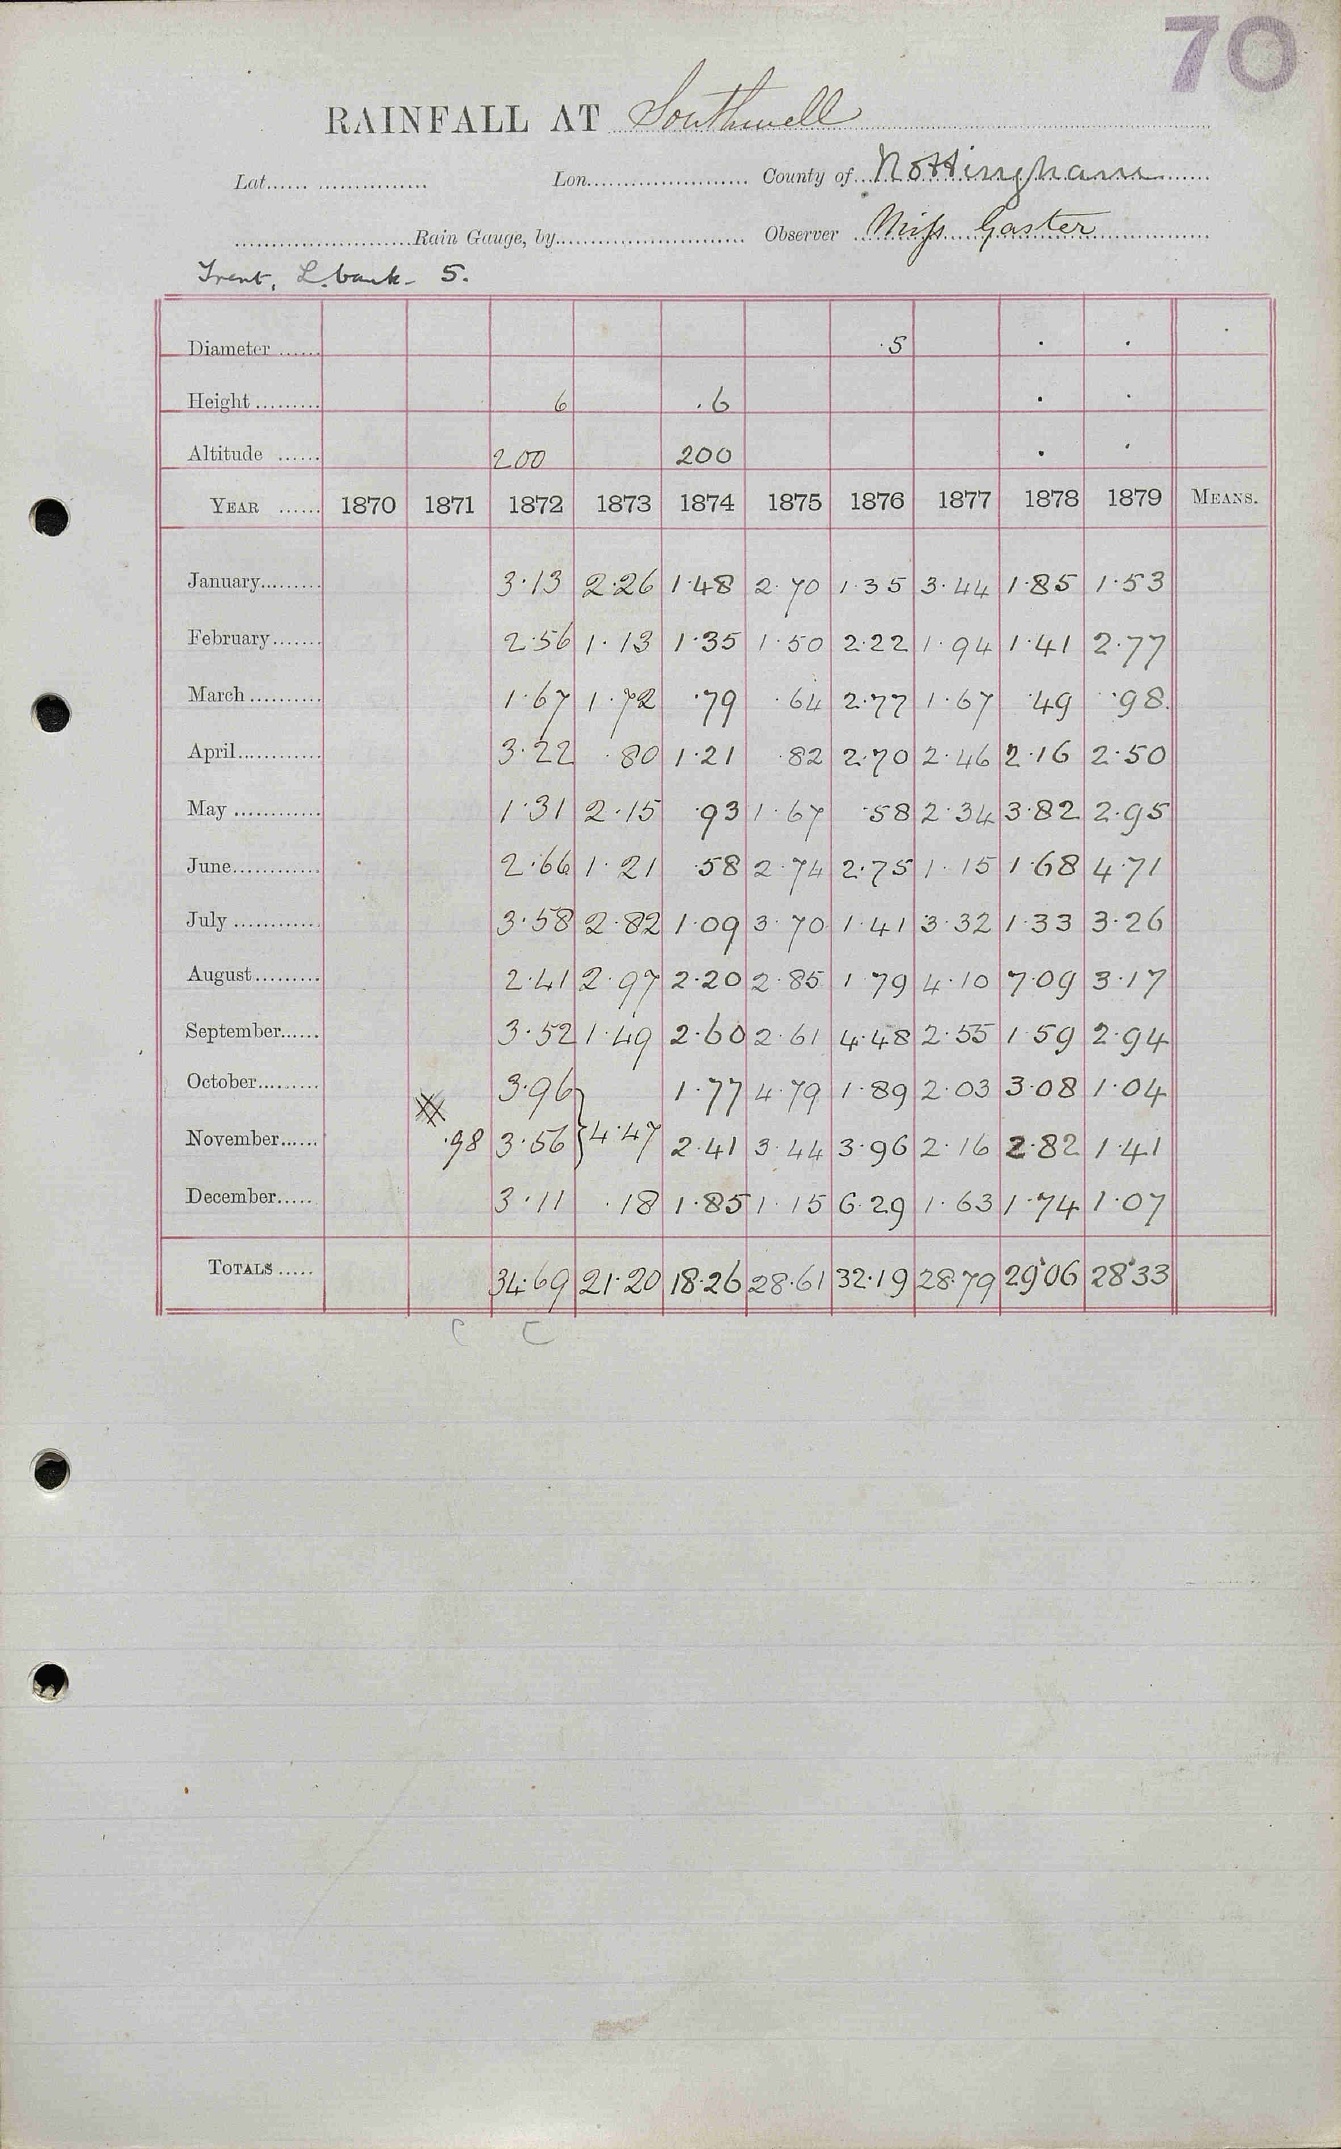 70
RAINFALL AT Southwell
Lat. Lon. County of Nottingham
Rain Gauge, by Observer Miss Gaster
Trent, L. bank - 5.
Diameter ·5 · · ·
Height 6 ·6 · ·
Altitude 200 200 · ·
YEAR 1870 1871 1872 1873 1874 1875 1876 1877 1878 1879 MEANS.
January 3·13 2·26 1·48 2·70 1·35 3·44 1·85 1·53
February 2·56 1·13 1·35 1·50 2·22 1·94 1·41 2·77
March 1·67 1·72 ·79 ·64 2·77 1·67 ·49 ·98
April 3·22 ·80 1·21 ·82 2·70 2·46 2·16 2·50
May 1·31 2·15 ·93 1·67 ·58 2·34 3·82 2·95
June 2·66 1·21 ·58 2·74 2·75 1·15 1·68 4·71
July 3·58 2·82 1·09 3·70 1·41 3·32 1·33 3·26
August 2·41 2·97 2·20 2·85 1·79 4·10 7·09 3·17
September 3·52 1·49 2·60 2·61 4·48 2·55 1·59 2·94
October 3·96 1·77 4·79 1·89 2·03 3·08 1·04
November ·98 3·56 } 4·47 2·41 3·44 3·96 2·16 2·82 1·41
December 3·11 ·18 1·85 1·15 6·29 1·63 1·74 1·07
TOTALS 34·69 21·20 18·26 28·61 32·19 28·79 29·06 28·33
C C